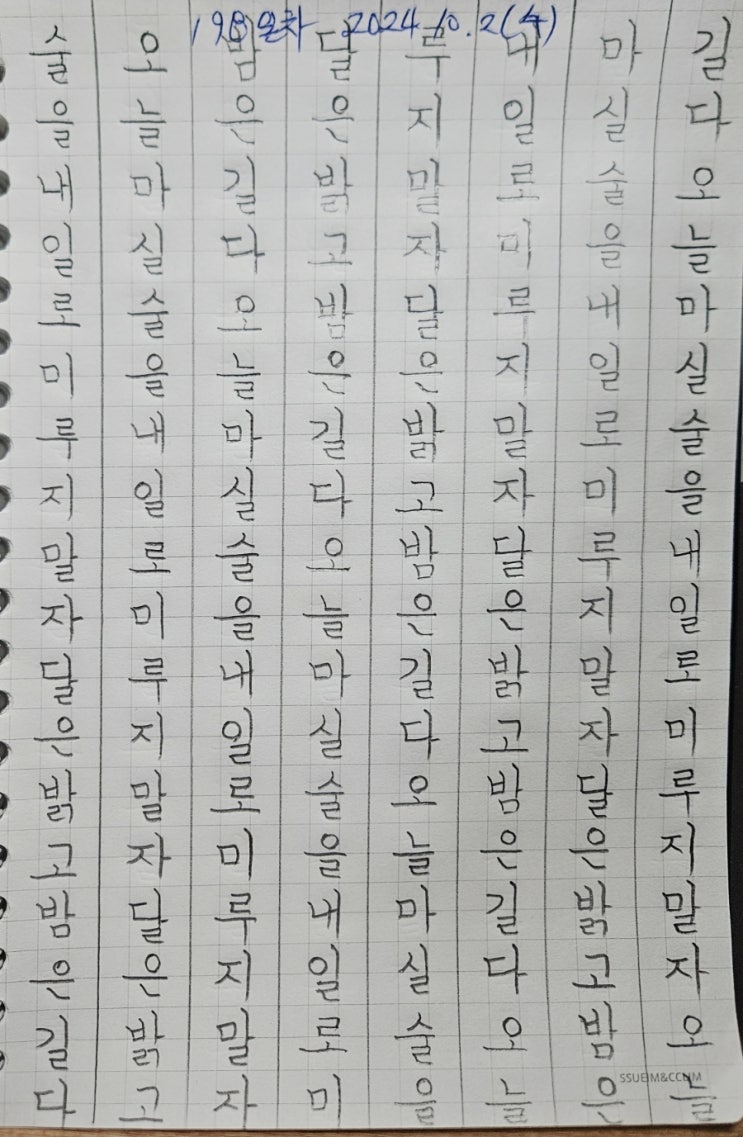 198일차 2024.10.2(수)
술을내일로미루지말자달은밝고밤은길다
오늘마실술을내일로미루지말자달은밝고
밤은길다오늘마실술을내일로미루지말자
달은밝고밤은길다오늘마실술을내일로미
루지말자달은밝고밤은길다오늘마실술을
내일로미루지말자달은밝고밤은길다오늘
마실술을내일로미루지말자달은밝고밤은
길다오늘마실술을내일로미루지말자오늘
SSUEIM&CCNM